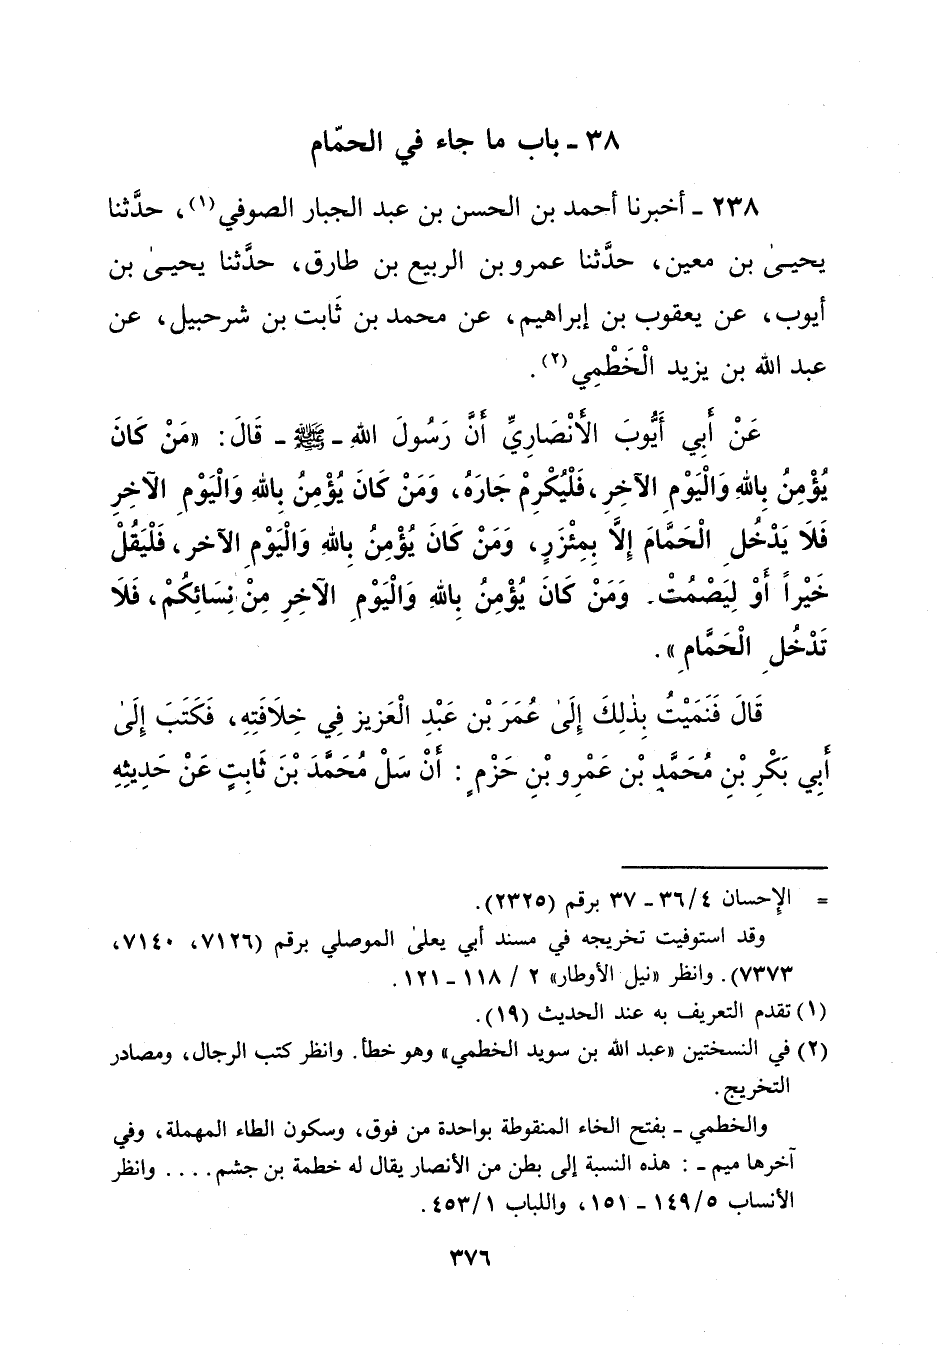 ٣٨ ـ باب ما جاء في الحمّام
٢٣٨ ـ أخبرنا أحمد بن الحسن بن عبد الجبار الصوفي(١)، حدَّثنا
يحيىٰ بن معين، حدَّثنا عمرو بن الربيع بن طارق، حدَّثنا يحيىٰ بن
أيوب، عن يعقوب بن إبراهيم، عن محمد بن ثَابت بن شرحبيل، عن
عبد الله بن يزيد الْخَطْمِي(٢).
عَنْ أَبِي أَيُّوبَ الأَنْصَارِيِّ أَنَّ رَسُولَ اللهِ ـ ﷺ ـ قَالَ: «مَنْ كَانَ
يُؤْمِنُ بِاللهِ وَالْيَوْمِ الآخِرِ، فَلْيُكْرِمْ جَارَهُ، وَمَنْ كَانَ يُؤْمِنُ بِاللهِ وَالْيَوْمِ الآخِرِ
فَلاَ يَدْخُلِ الْحَمَّامَ إِلاَّ بِمِئْزَرٍ، وَمَنْ كَانَ يُؤْمِنُ بِاللهِ وَالْيَوْمِ الآخر، فَلْيَقُلْ
خَيْراً أَوْ لِيَصْمُتْ. وَمَنْ كَانَ يُؤْمِنُ بِاللهِ وَالْيَوْمِ الآخِرِ مِنْ نِسَائِكُمْ، فَلاَ
تَدْخُلِ الْحَمَّامِ».
قَالَ فَنَمَيْتُ بِذٰلِكَ إِلَىٰ عُمَرَ بْنِ عَبْدِ الْعَزِيزِ فِي خِلاَفَتِهِ، فَكَتَبَ إِلَىٰ
أَبِي بَكْرِ بْنِ مُحَمَّدِ بْنِ عَمْرِو بْنِ حَزْمٍ : أَنْ سَلْ مُحَمَّدَ بْنَ ثَابِتٍ عَنْ حَدِيثِهِ
= الإحسان ٣٦/٤ ـ ٣٧ برقم (٢٣٢٥).
وقد استوفيت تخريجه في مسند أبي يعلىٰ الموصلي برقم (٧١٢٦، ٧١٤٠،
٧٣٧٣). وانظر «نيل الأوطار» ٢ / ١١٨ ـ ١٢١.
(١) تقدم التعريف به عند الحديث (١٩).
(٢) في النسختين «عبد الله بن سويد الخطمي» وهو خطأ. وانظر كتب الرجال، ومصادر
التخريج.
والخطمي ـ بفتح الخاء المنقوطة بواحدة من فوق، وسكون الطاء المهملة، وفي
آخرها ميم ـ : هذه النسبة إلى بطن من الأنصار يقال له خطمة بن جشم.... وانظر
الأنساب ١٤٩/٥ ـ ١٥١، واللباب ٤٥٣/١.
٣٧٦